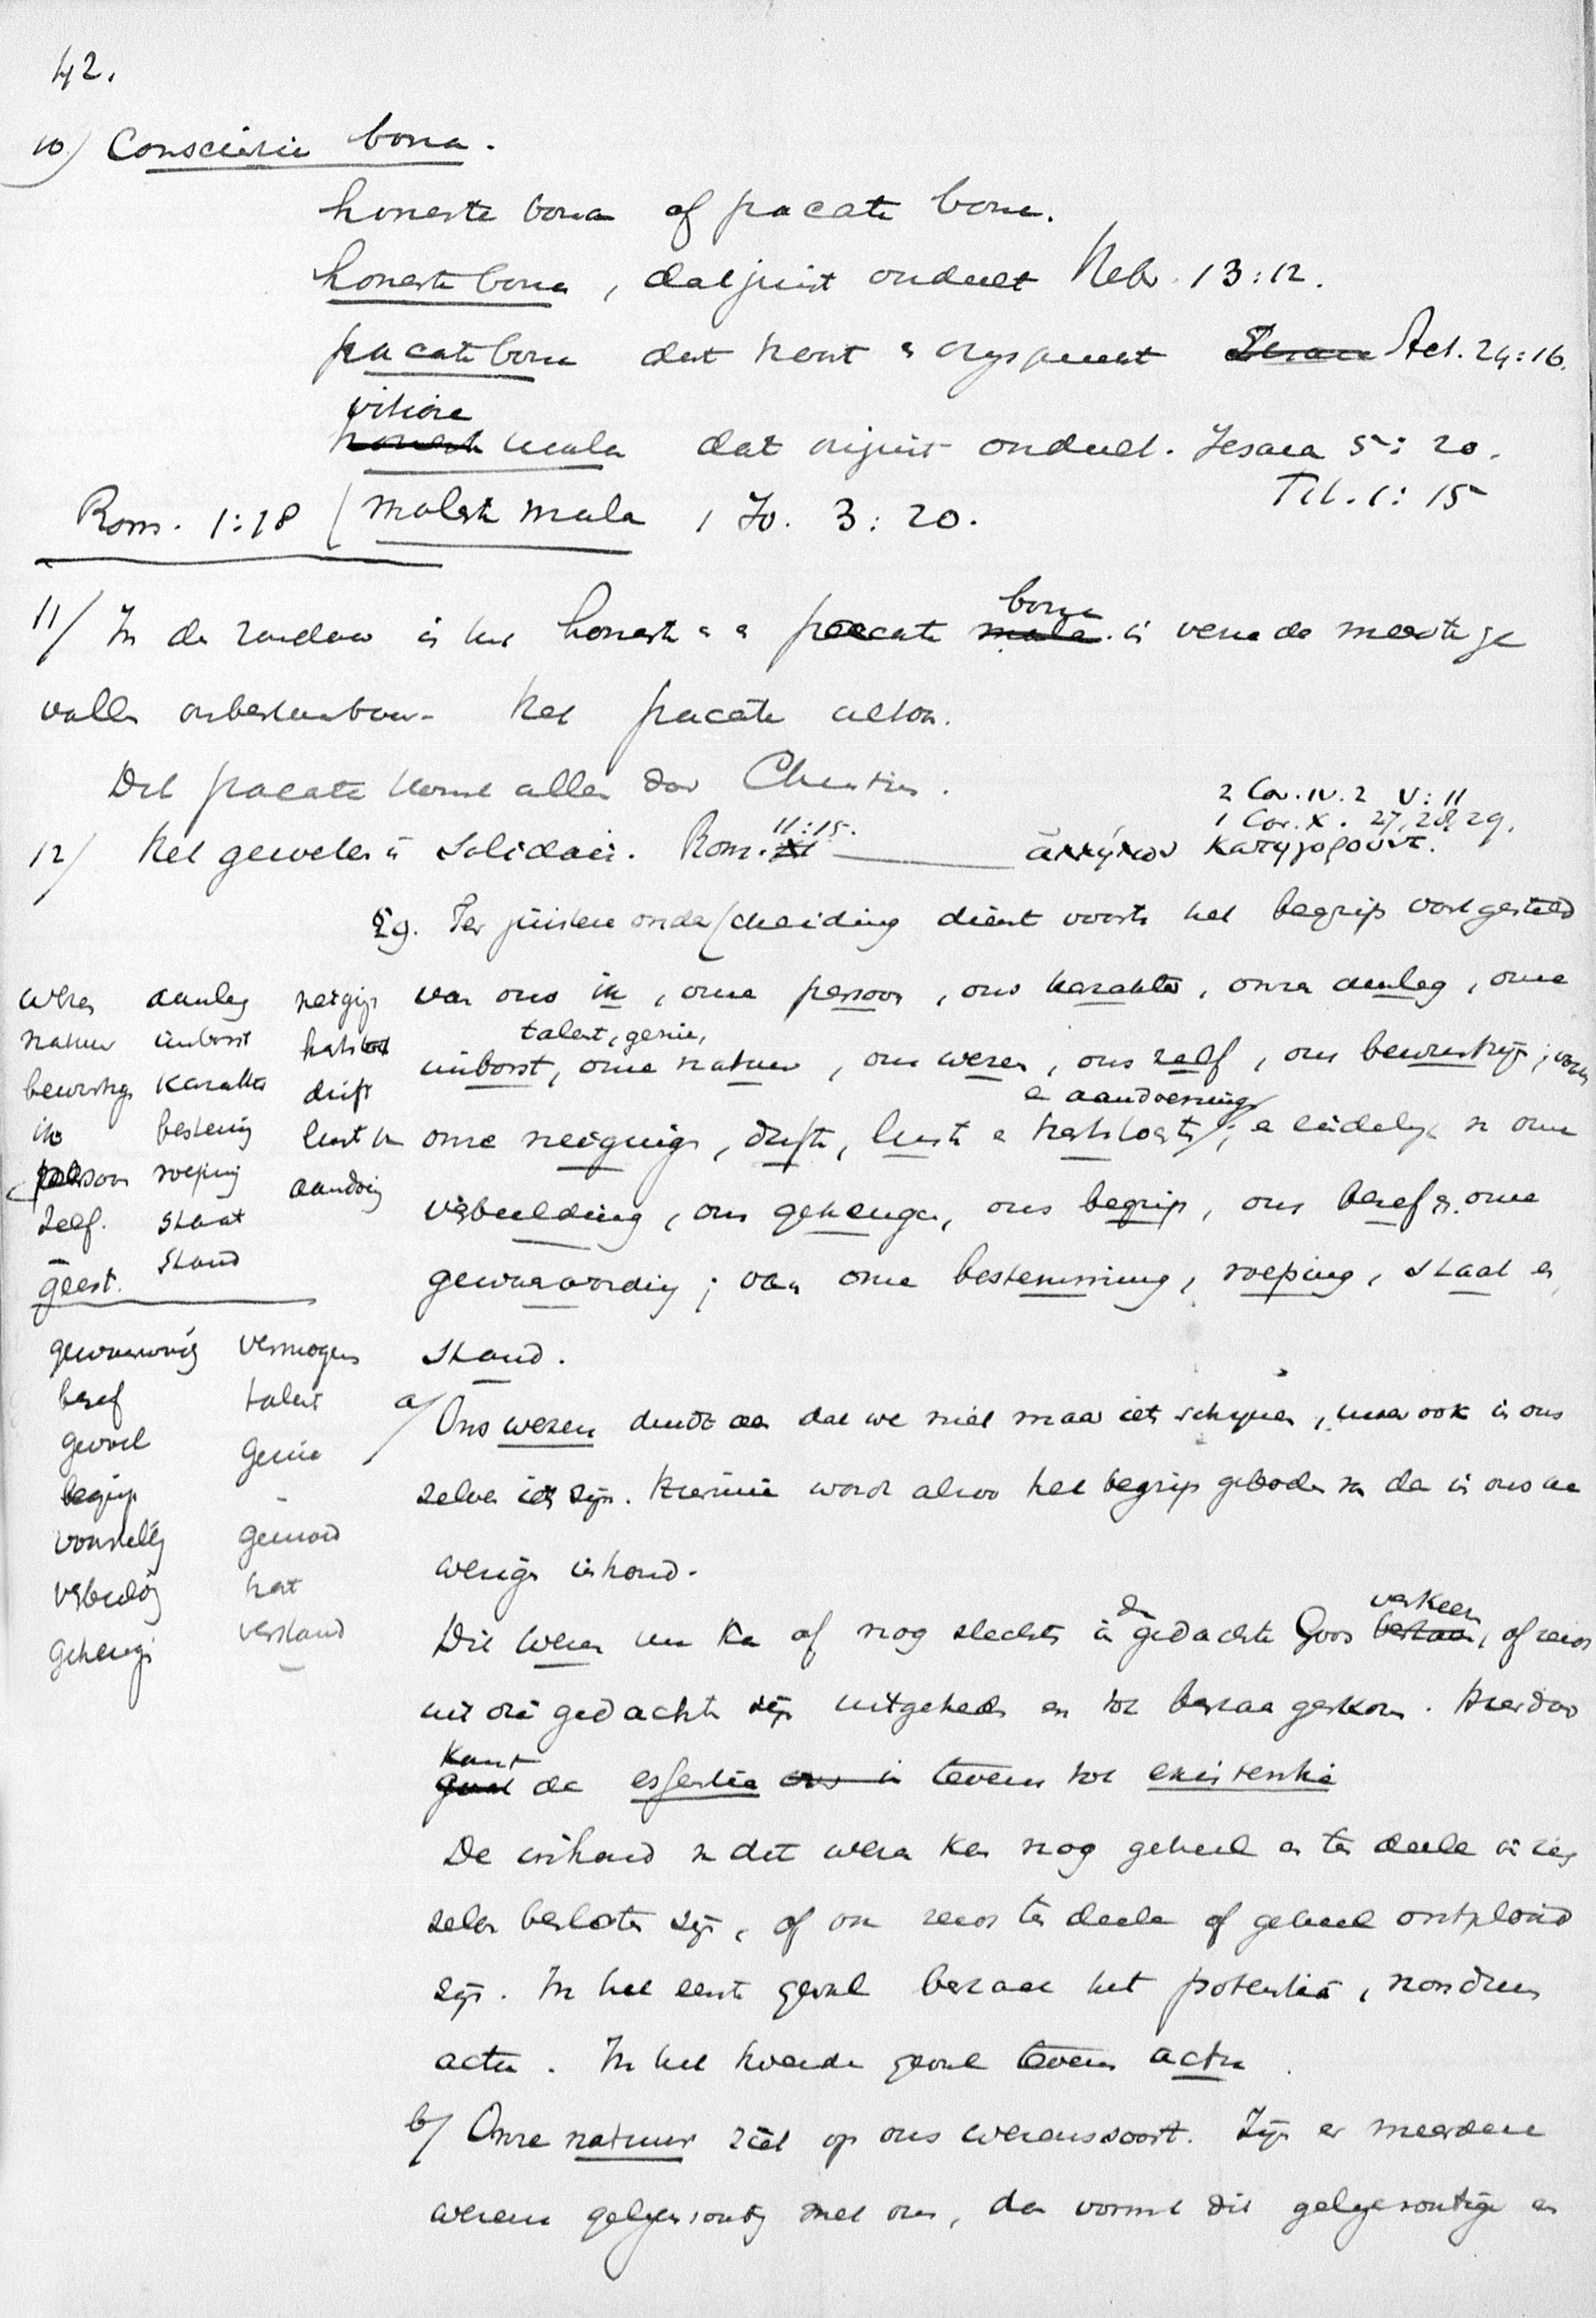 42.
10) Conscientie bona.
honeste bona of pacate bona.
honeste bona, dat juist oordeelt Hebr. 13:12.
pacate bona dat kent & vrijspreekt Act. 24:16.
vitiose
mala dat onjuist oordeelt. Jesaia 5:20.
Tit. 1:15
Rom. 1:18 / moleste mala 1 Jo. 3:20.
11/ In de zondaar is het honeste en pacate bona in verre de meeste ge
vallen onbestaanbaar. Het pacate altoos.
Dit pacate komt alleen door Christus.
2 Cor. IV. 2 V:11
1 Cor. X. 27, 28, 29.
12/ Het geweten is Solidair. Rom. 11:15. ἀλλήλων κατηγορούντ.
§9. Ter juistere onderscheiding dient voorts het begrip vastgesteld
van ons ik, onze persoon, ons karakter, onze aanleg, onze
talent, genie,
inborst, onze natuur, ons wezen, ons zelf, ons bewustzijn; voorts
en aandoeningen
onze neigingen, drift, lust en hartstocht; en eindelijk van onze
verbeelding, ons geheugen, ons begrip, ons besef en onze
gewaarwording; van onze bestemming, roeping, staat en
stand.
wezen aanleg neiging
natuur inborst hartstocht
bewustz karakter drift
ik bestemg lust
persoon roeping aandoeng
zelf. staat
geest. stand
gewaarwordg vermogens
besef talent
gevoel genie
begrip -
voorstellg gemoed
verbeeldg hart
geheug verstand
a/ Ons wezen duidt aan dat we niet maar iets schijnen, maar ook in ons
zelven iets zijn. Hiermee wordt alzoo het begrip geboden van de in ons aan
wezigen inhoud.
Dit wezen nu kan of nog slechts in de gedachte Gods verkeeren, of reeds
uit die gedachte zijn uitgetreden en tot bestaan gekomen. Hierdoor
komt de essentia tevens tot existentia
De inhoud van dit wezen kan nog geheel en ten deele in zich
zelven besloten zijn, of ook reeds ten deele of geheel ontplooid
zijn. In het eerste geval bestaat het potentiâ, nondum
actu. In het tweede geval tevens actu.
b/ Onze natuur ziet op ons wezenssoort. Zijn er meerdere
wezens gelijksoortig met ons, dan vormt dit gelijksoortige en